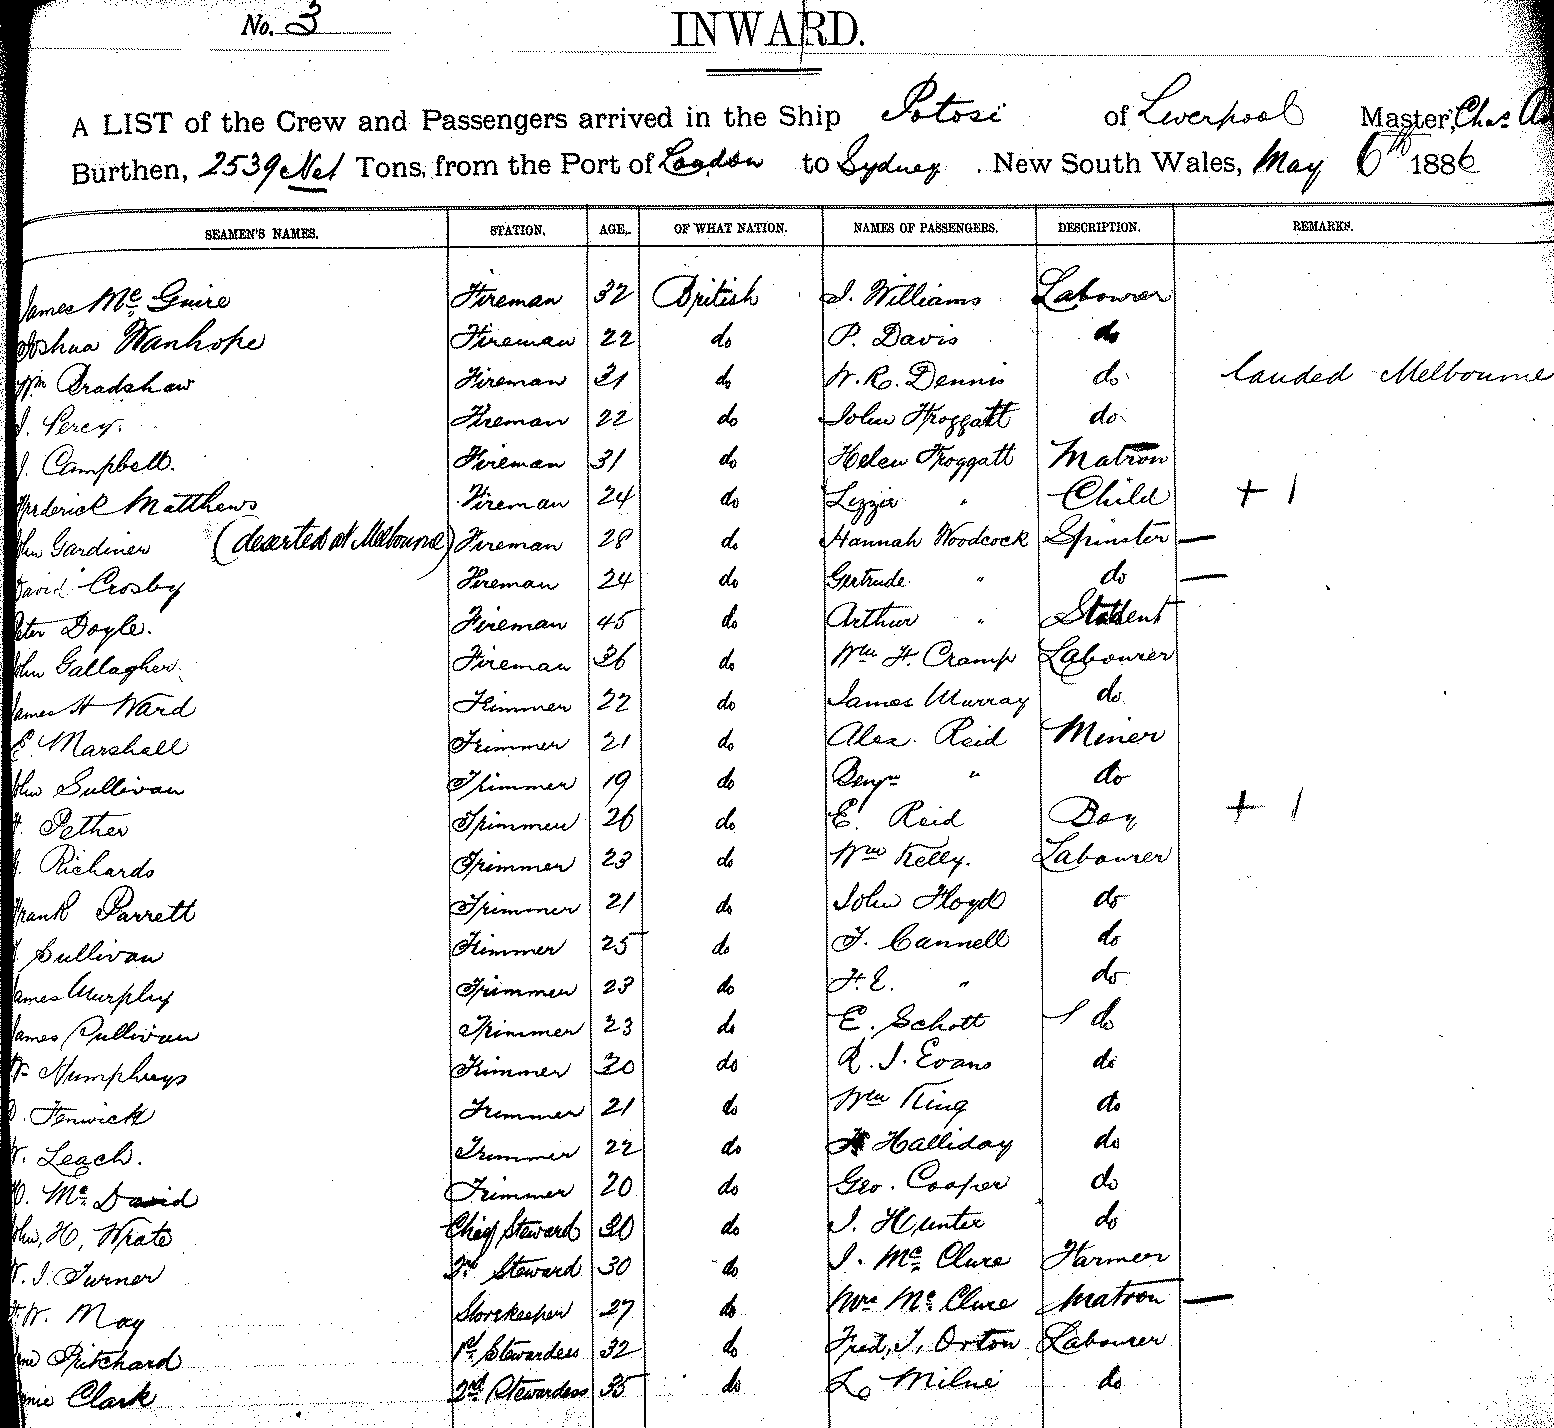 No. 3
INWARD.
A LIST of the Crew and Passengers arrived in the Ship Potosi of Liverpool Master, Chas.
Burthen, 2539 Net Tons, from the Port of London to Sydney . New South Wales, May 6th 1886
SEAMEN'S NAMES. STATION. AGE. OF WHAT NATION. NAMES OF PASSENGERS. DESCRIPTION. REMARKS.
James Mc Guire Fireman 32 British J. Williams Labourer
Joshua Wanhope Fireman 22 do P. Davis do
Wm Bradshaw Fireman 31 do W. R. Dennis do landed Melbourne
J. Percy. Fireman 22 do John Froggatt do
J. Campbell. Fireman 31 do Helen Froggatt Matron
Frederick Matthews Fireman 24 do Lizzie " Child + 1
John Gardiner (deserted at Melbourne) Fireman 28 do Hannah Woodcock Spinster —
David Crosby Fireman 24 do Gertrude " do —
Peter Doyle. Fireman 45 do Arthur " Student
John Gallagher Fireman 36 do Wm H. Cramp Labourer
James H Ward Trimmer 22 do James Murray do
E. Marshall Trimmer 21 do Alex. Reid Miner
John Sullivan Trimmer 19 do Benjn " do
Pether Trimmer 26 do E. Reid Boy + 1
Richards Trimmer 23 do Wm Kelly. Labourer
Frank Parrett Trimmer 21 do John Floyd do
J Sullivan Trimmer 25 do T. Cannell do
James Murphy Trimmer 23 do F. E. " do
James Sullivan Trimmer 23 do E. Schott do
Humphreys Trimmer 20 do R. J. Evans do
Fenwick Trimmer 21 do Wm King do
W. Leach. Trimmer 22 do Halliday do
Mc David Trimmer 20 do Geo. Cooper do
John, H, Wrate Chief Steward 30 do J. Hunter do
W. J. Turner Steward 30 do J. Mc Clure Farmer
W. May Storekeeper 27 do Mrs Mc Clure Matron —
Pritchard 1st Stewardess 32 do Fred, J, Orton Labourer
Clark 2nd Stewardess 35 do L. Milne do